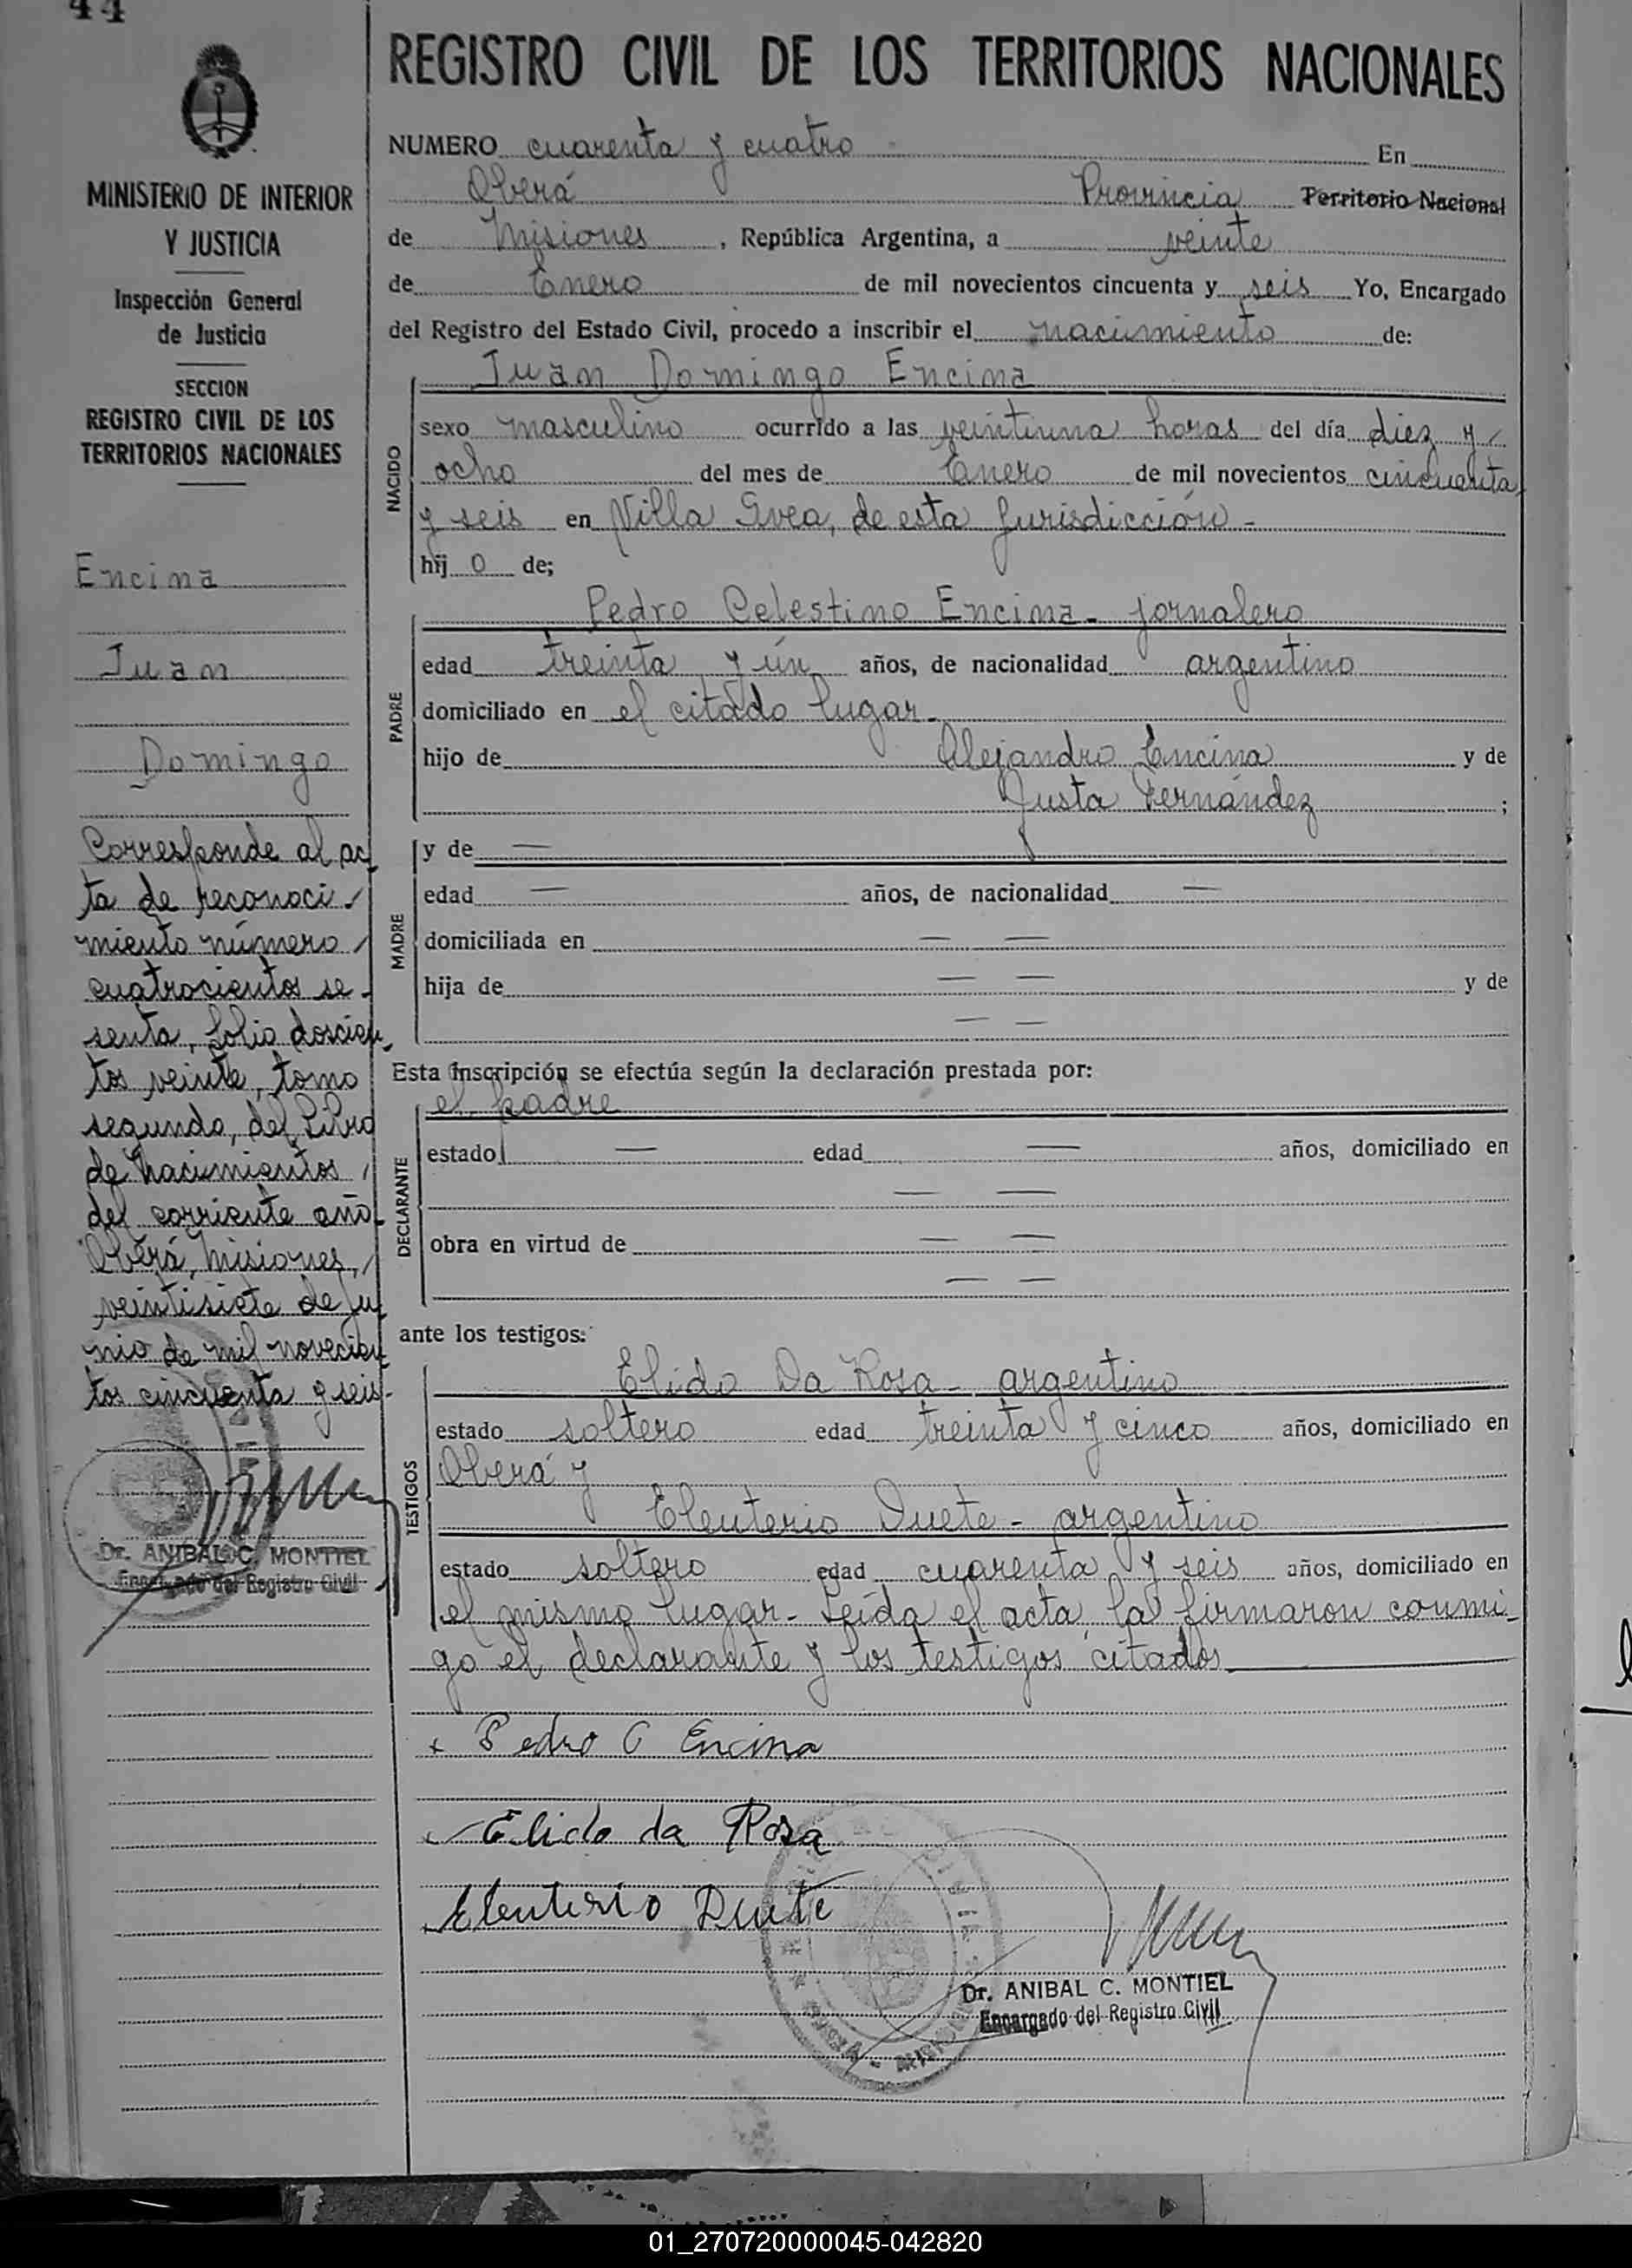 44
REGISTRO CIVIL DE LOS TERRITORIOS NACIONALES
MINISTERIO DE INTERIOR
Y JUSTICIA
Inspección General
de Justicia
SECCION
REGISTRO CIVIL DE LOS
TERRITORIOS NACIONALES
Encina
Juan
Domingo
Corresponde al ac-
ta de reconoci-
miento número
cuatrocientos se-
senta, folio doscien-
tos veinte, tomo
segundo, del Libro
de Nacimientos
del corriente año
Oberá, Misiones,
veintisiete de Ju
nio de mil novecien
tos cincuenta y seis-
Dr. ANIBAL C. MONTIEL
Encargado del Registro Civil
NUMERO cuarenta y cuatro En
Oberá Provincia Territorio Nacional
de Misiones, República Argentina, a veinte
de Enero de mil novecientos cincuenta y seis Yo, Encargado
del Registro del Estado Civil, procedo a inscribir el nacimiento de:
NACIDO
Juan Domingo Encina
sexo masculino ocurrido a las veintiuna horas del día diez y
ocho del mes de Enero de mil novecientos cincuenta
y seis en Villa Svea, de esta Jurisdicción -
hij o de;
PADRE
Pedro Celestino Encina - jornalero
edad treinta y ún años, de nacionalidad argentino
domiciliado en el citado lugar -
hijo de Alejandro Encina y de
Justa Fernández ;
MADRE
y de —
edad — años, de nacionalidad —
domiciliada en — —
hija de — — y de
— —
Esta inscripción se efectúa según la declaración prestada por:
DECLARANTE
el padre
estado — edad — años, domiciliado en
— —
obra en virtud de — —
— —
ante los testigos:
TESTIGOS
Elido Da Rosa - argentino
estado soltero edad treinta y cinco años, domiciliado en
Oberá y
Eleuterio Duete - argentino
estado soltero edad cuarenta y seis años, domiciliado en
el mismo lugar - Leída el acta, la firmaron conmi-
go el declarante y los testigos citados
x Pedro C Encina
Elido da Rosa
Eleuterio Duete
Dr. ANIBAL C. MONTIEL
Encargado del Registro Civil
01_270720000045-042820